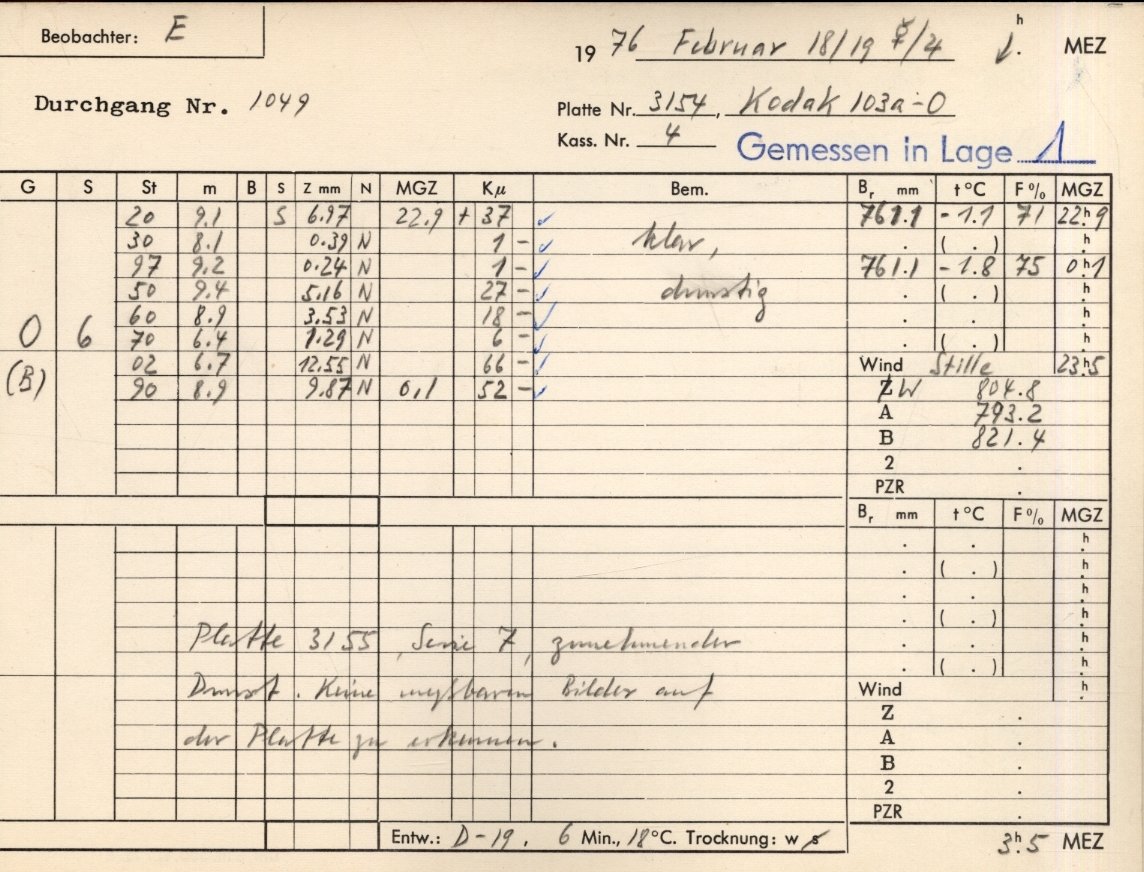 Beobachter: E
1976 Februar 18/19 ☿/♃ h MEZ
Durchgang Nr. 1049
Platte Nr. 3154, Kodak 103a-O
Kass. Nr. 4
Gemessen in Lage 1
G S St m B S Z mm N MGZ Kμ Bem. Br mm t°C F% MGZ
20 9.1 S 6.97 22.9 + 37 761.1 -1.1 71 22h.9
30 8.1 0.39 N 1 - klar, . ( . ) h.
97 9.2 0.24 N 1 - 761.1 -1.8 75 0h.1
50 9.4 5.16 N 27 - dunstig . ( . ) h.
60 8.9 3.53 N 18 - . . h.
O 6 70 6.4 1.29 N 6 - ( . ) h.
02 6.7 12.55 N 66 - Wind Stille 23h.5
(B) 90 8.9 9.87 N 0.1 52 - Z W 804.8
A 793.2
B 821.4
2 .
PZR .
Br mm t°C F% MGZ
. . h.
. ( . ) h.
. . h.
. ( . ) h.
Platte 3155, Serie 7, zunehmender . . h.
. ( . ) h.
Dunst. Keine meßbaren Bilder auf Wind h.
Z .
der Platte zu erkennen. A .
B .
2 .
PZR .
Entw.: D-19, 6 Min., 18°C. Trocknung: w s 3h.5 MEZ